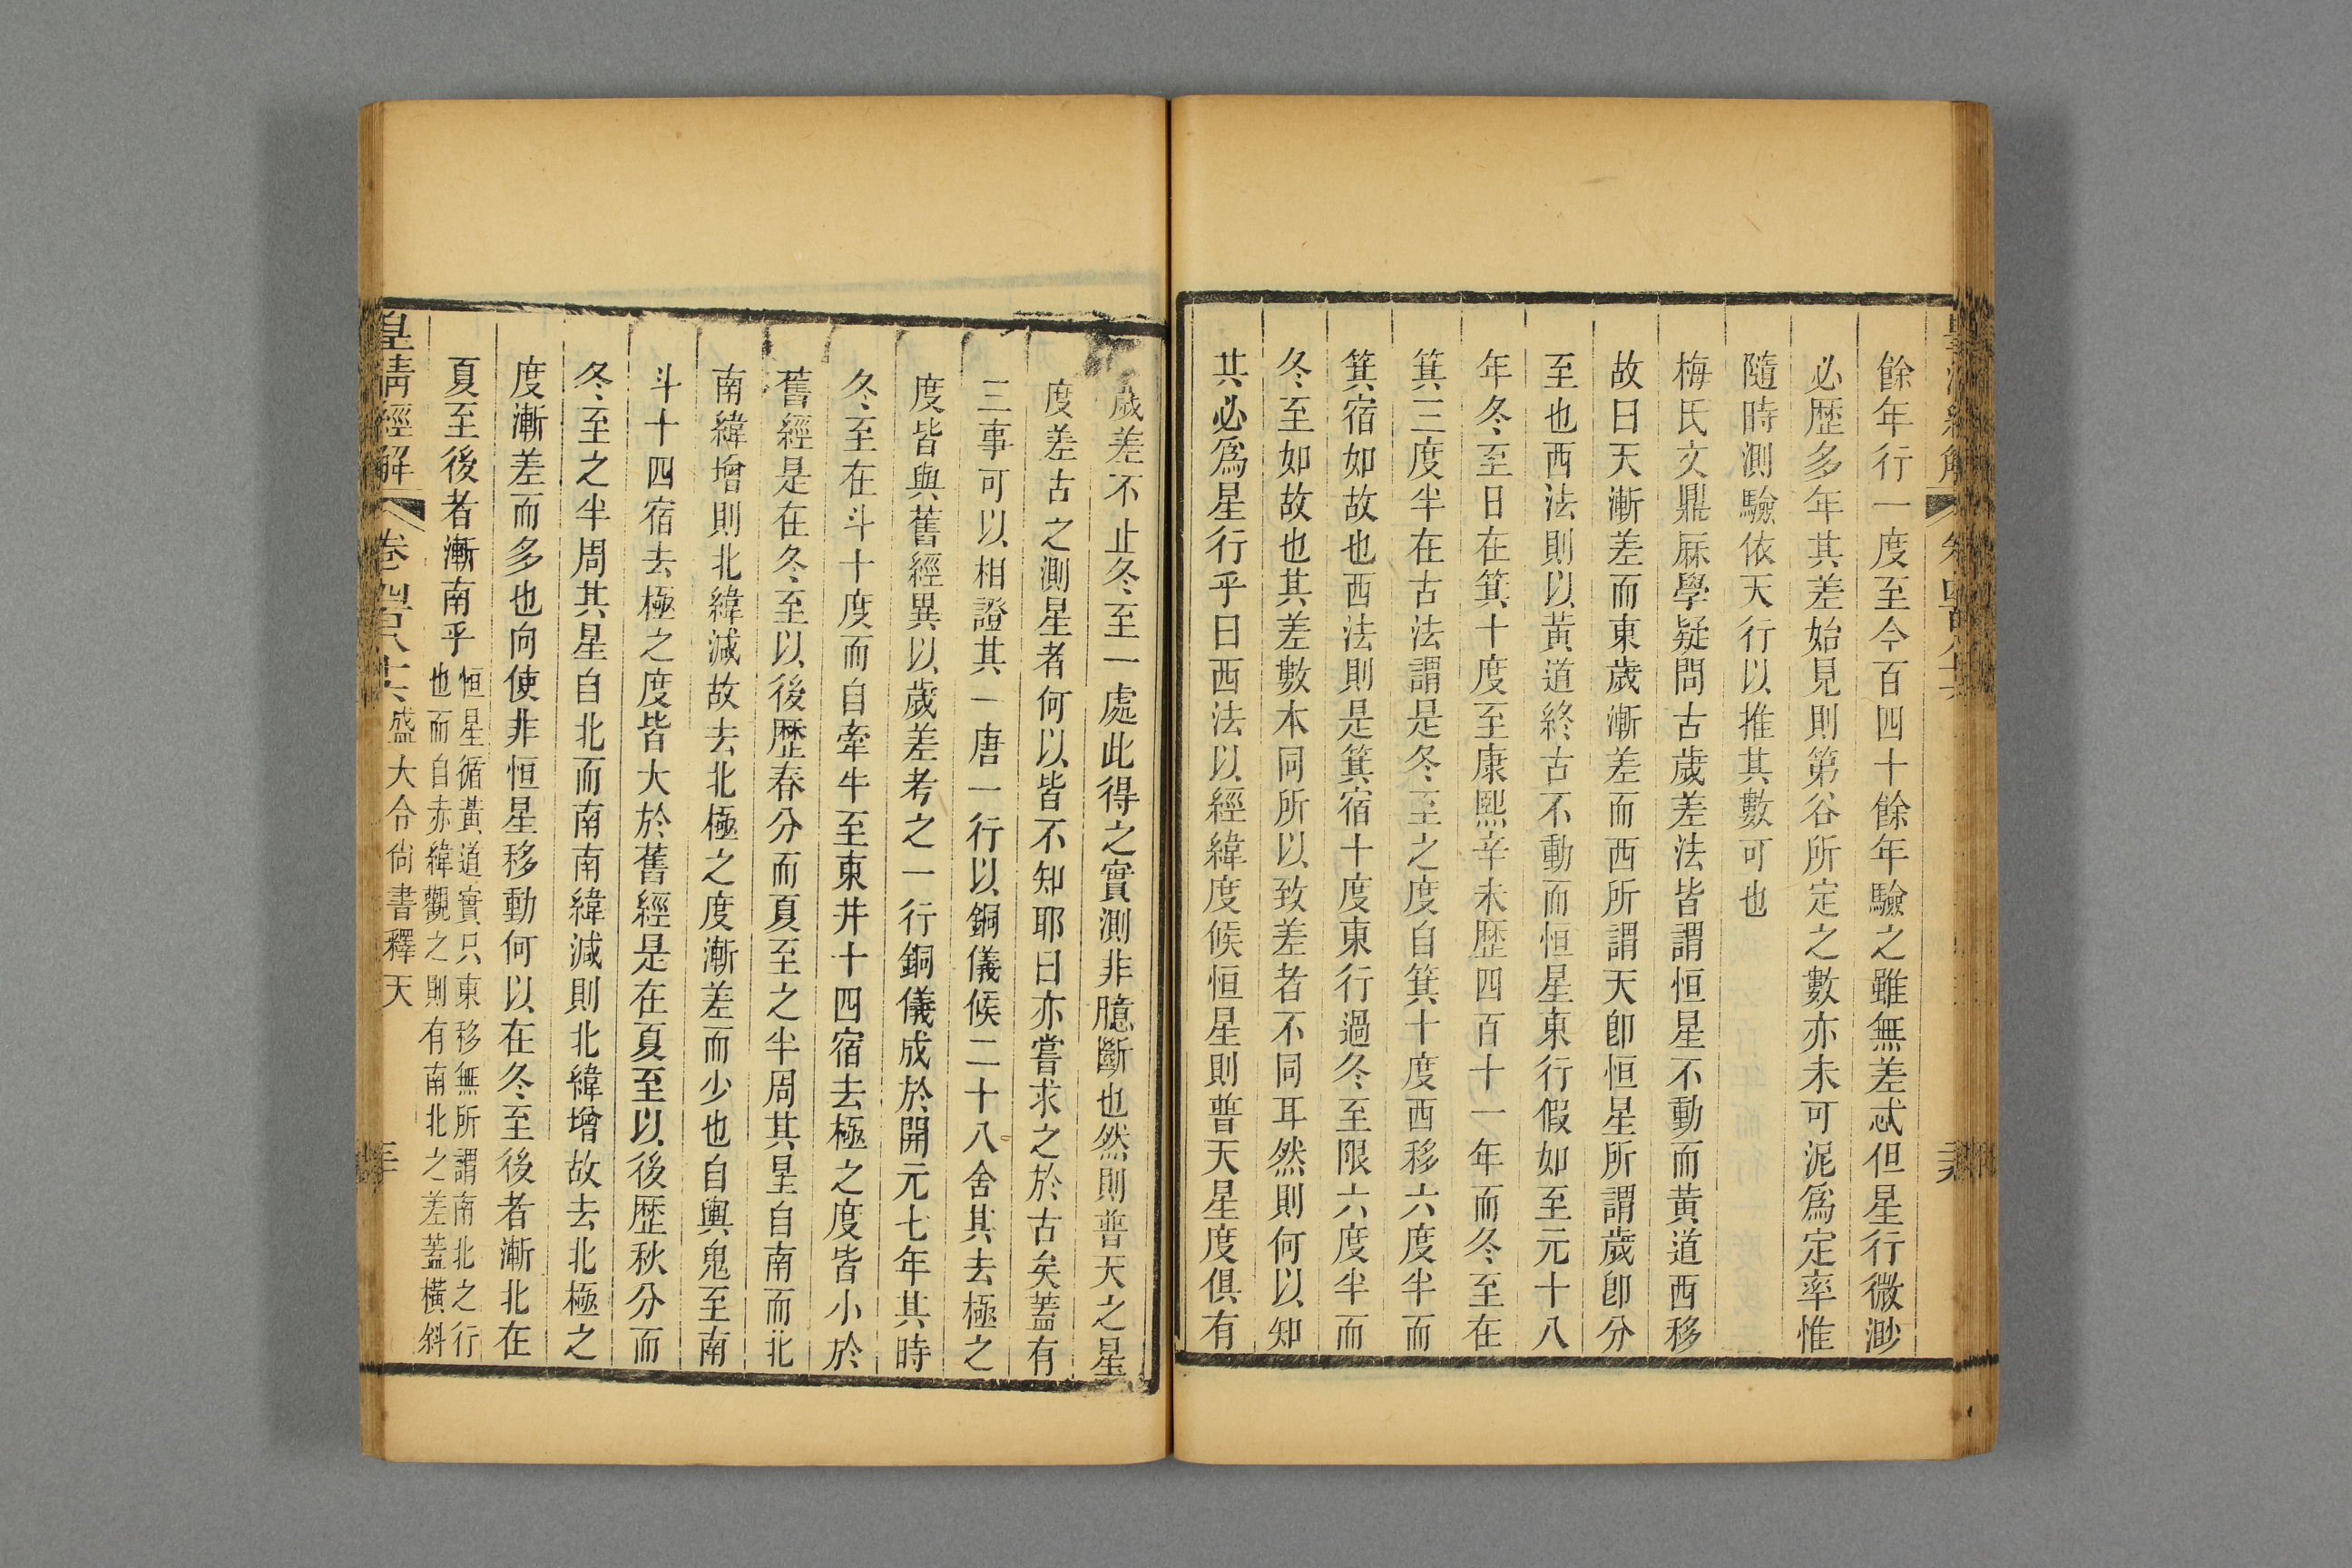 餘年行一度至今百四十餘年驗之雖無差忒但星行微渺
必歷多年其差始見則第谷所定之數亦未可泥爲定率惟
隨時測驗依天行以推其數可也
梅氏文鼎厤學疑問古歲差法皆謂恒星不動而黃道西移
故曰天漸差而東歲漸差而西所謂天卽恒星所謂歲卽分
至也西法則以黃道終古不動而恒星東行假如至元十八
年冬至日在箕十度至康熙辛未歷四百十一年而冬至在
箕三度半在古法謂是冬至之度自箕十度西移六度半而
箕宿如故也西法則是箕宿十度東行過冬至限六度半而
冬至如故也其差數本同所以致差者不同耳然則何以知
其必爲星行乎曰西法以經緯度候恒星則普天星度俱有
歲差不止冬至一處此得之實測非臆斷也然則普天之星
度差古之測星者何以皆不知耶曰亦嘗求之於古矣蓋有
三事可以相證其一唐一行以銅儀候二十八舍其去極之
度皆與舊經異以歲差考之一行銅儀成於開元七年其時
冬至在斗十度而自牽牛至東井十四宿去極之度皆小於
舊經是在冬至以後歷春分而夏至之半周其星自南而北
南緯增則北緯減故去北極之度漸差而少也自輿鬼至南
斗十四宿去極之度皆大於舊經是在夏至以後歷秋分而
冬至之半周其星自北而南南緯減則北緯增故去北極之
度漸差而多也向使非恒星移動何以在冬至後者漸北在
夏至後者漸南乎
恒星循黃道實只東移無所謂南北之行
也而自赤緯觀之則有南北之差蓋橫斜
皇清經解 卷四百八十六 盛大令尙書釋天